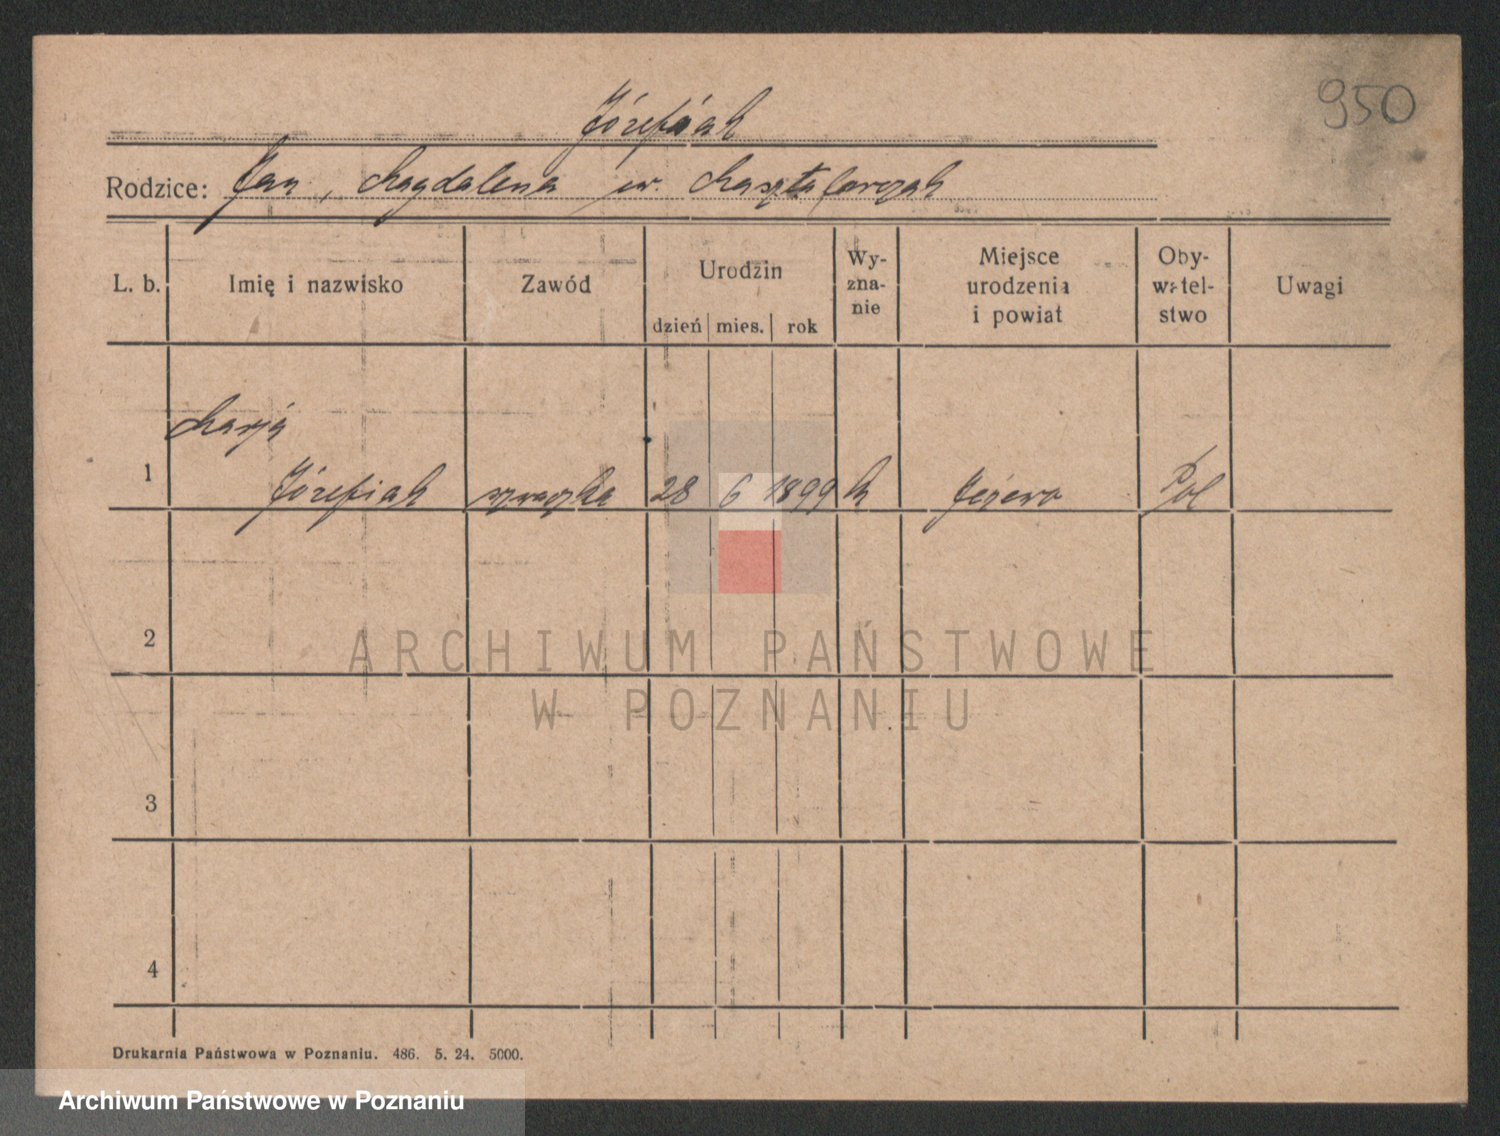 950
Józefiak
Rodzice: Jan, Magdalena ur. Masztalerzak
L. b. Imię i nazwisko Zawód Urodzin dzień mies. rok Wy-zna-nie Miejsce urodzenia i powiat Oby-watel-stwo Uwagi
Marja
1 Józefiak szwaczka 28 6 1899 k Jeżewo Pol
2
ARCHIWUM PAŃSTWOWE
W POZNANIU
3
4
Drukarnia Państwowa w Poznaniu. 486. 5. 24. 5000.
Archiwum Państwowe w Poznaniu